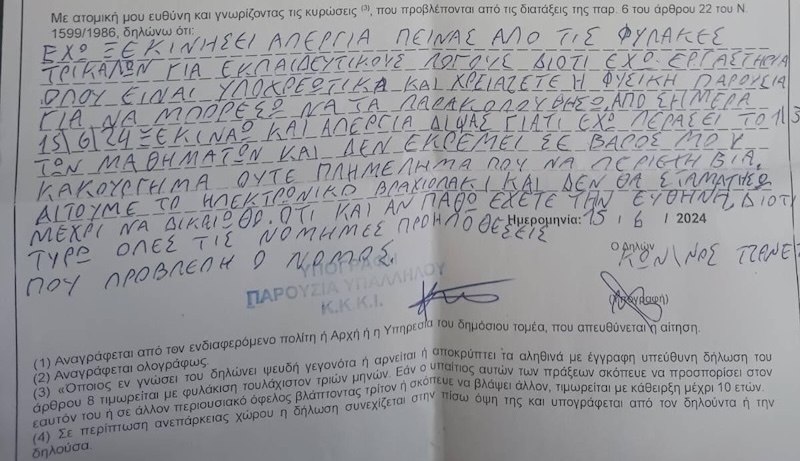 Με ατομική μου ευθύνη και γνωρίζοντας τις κυρώσεις (3), που προβλέπονται από τις διατάξεις της παρ. 6 του άρθρου 22 του Ν.
1599/1986, δηλώνω ότι:
ΕΧΩ ΞΕΚΙΝΗΣΕΙ ΑΠΕΡΓΙΑ ΠΕΙΝΑΣ ΑΠΟ ΤΙΣ ΦΥΛΑΚΕΣ
ΤΡΙΚΑΛΩΝ ΓΙΑ ΕΚΠΑΙΔΕΥΤΙΚΟΥΣ ΛΟΓΟΥΣ ΔΙΟΤΙ ΕΧΩ ΕΡΓΑΣΤΗΡΙΑ
ΟΠΟΥ ΕΙΝΑΙ ΥΠΟΧΡΕΩΤΙΚΑ ΚΑΙ ΧΡΕΙΑΖΕΤΕ Η ΦΥΣΙΚΗ ΠΑΡΟΥΣΙΑ
ΓΙΑ ΝΑ ΜΠΟΡΕΣΩ ΝΑ ΤΑ ΠΑΡΑΚΟΛΟΥΘΗΣΩ, ΑΠΟ ΣΗΜΕΡΑ
15/6/24 ΞΕΚΙΝΑΩ ΚΑΙ ΑΠΕΡΓΙΑ ΔΙΨΑΣ ΓΙΑΤΙ ΕΧΩ ΠΕΡΑΣΕΙ ΤΟ 1/3
ΤΩΝ ΜΑΘΗΜΑΤΩΝ ΚΑΙ ΔΕΝ ΕΚΡΕΜΕΙ ΣΕ ΒΑΡΟΣ ΜΟΥ
ΚΑΚΟΥΡΓΗΜΑ ΟΥΤΕ ΠΛΗΜΕΛΗΜΑ ΠΟΥ ΝΑ ΠΕΡΙΕΧΗ ΒΙΑ.
ΑΙΤΟΥΜΕ ΤΟ ΗΛΕΚΤΡΟΝΙΚΟ ΒΡΑΧΙΟΛΑΚΙ ΚΑΙ ΔΕΝ ΘΑ ΣΤΑΜΑΤΗΣΩ
ΜΕΧΡΙ ΝΑ ΔΙΚΑΙΩΘΩ. ΟΤΙ ΚΑΙ ΑΝ ΠΑΘΩ ΕΧΕΤΕ ΤΗΝ ΕΥΘΗΝΗ, ΔΙΟΤΙ
ΤΥΡΩ ΟΛΕΣ ΤΙΣ ΝΟΜΗΜΕΣ ΠΡΟΗΠΟΘΕΣΕΙΣ
Ημερομηνία: 15 / 6 / 2024
ΠΟΥ ΠΡΟΒΛΕΠΗ Ο ΝΟΜΟΣ.
Ο Δηλών
ΚΩΝ\ΝΟΣ
ΥΠΟΓΡΑΦΗ
ΠΑΡΟΥΣΙΑ ΥΠΑΛΛΗΛΟΥ
Κ.Κ.Κ.Ι.
(Υπογραφή)
(1) Αναγράφεται από τον ενδιαφερόμενο πολίτη ή Αρχή ή η Υπηρεσία του δημόσιου τομέα, που απευθύνεται η αίτηση.
(2) Αναγράφεται ολογράφως.
(3) «Όποιος εν γνώσει του δηλώνει ψευδή γεγονότα ή αρνείται ή αποκρύπτει τα αληθινά με έγγραφη υπεύθυνη δήλωση του
άρθρου 8 τιμωρείται με φυλάκιση τουλάχιστον τριών μηνών. Εάν ο υπαίτιος αυτών των πράξεων σκόπευε να προσπορίσει στον
εαυτόν του ή σε άλλον περιουσιακό όφελος βλάπτοντας τρίτον ή σκόπευε να βλάψει άλλον, τιμωρείται με κάθειρξη μέχρι 10 ετών.
(4) Σε περίπτωση ανεπάρκειας χώρου η δήλωση συνεχίζεται στην πίσω όψη της και υπογράφεται από τον δηλούντα ή την
δηλούσα.